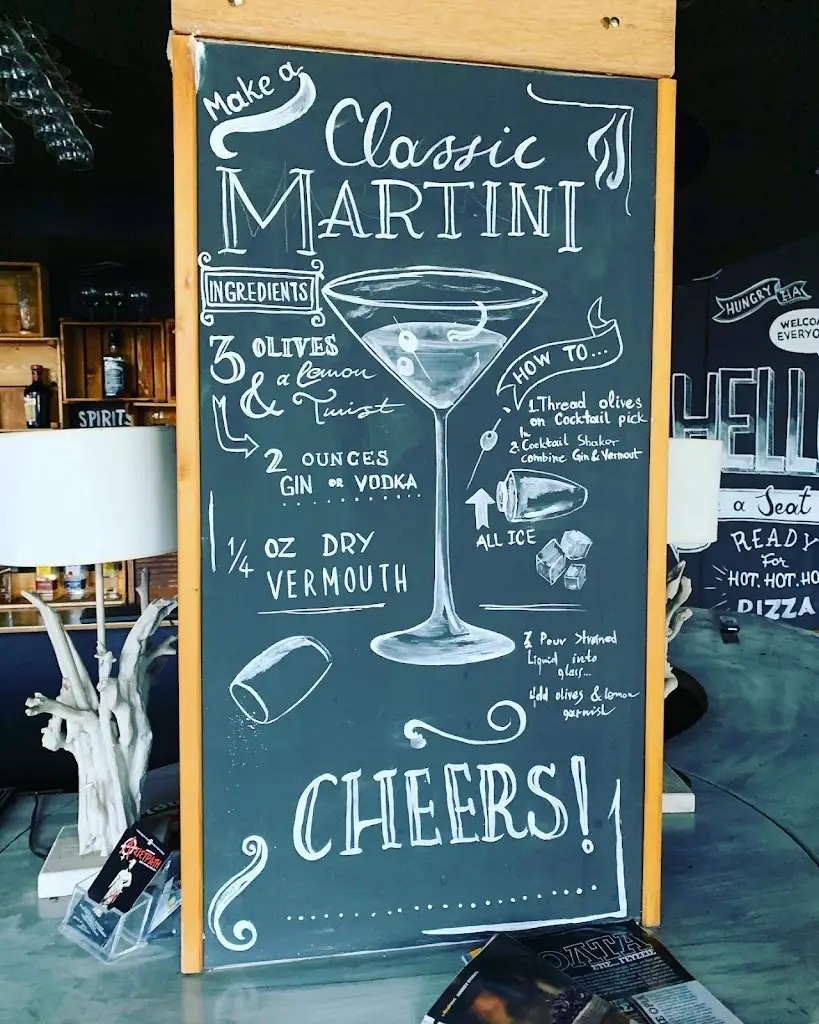 Make a
Classic
MARTINI
INGREDIENTS
3 OLIVES
& a lemon
Twist
2 OUNCES
GIN OR VODKA
1/4 OZ DRY
VERMOUTH
HOW TO...
1.Thread olives
on Cocktail pick
In
2. Cocktail Shaker
combine Gin & Vermout
ALL ICE
3 Pour Strained
Liquid into
glass...
Add olives & lemon
garnish
CHEERS!
SPIRITS
HUNGRY HA
WELCO
EVERYO
HELL
a Seat
READY
For
HOT. HOT. HO
PIZZA